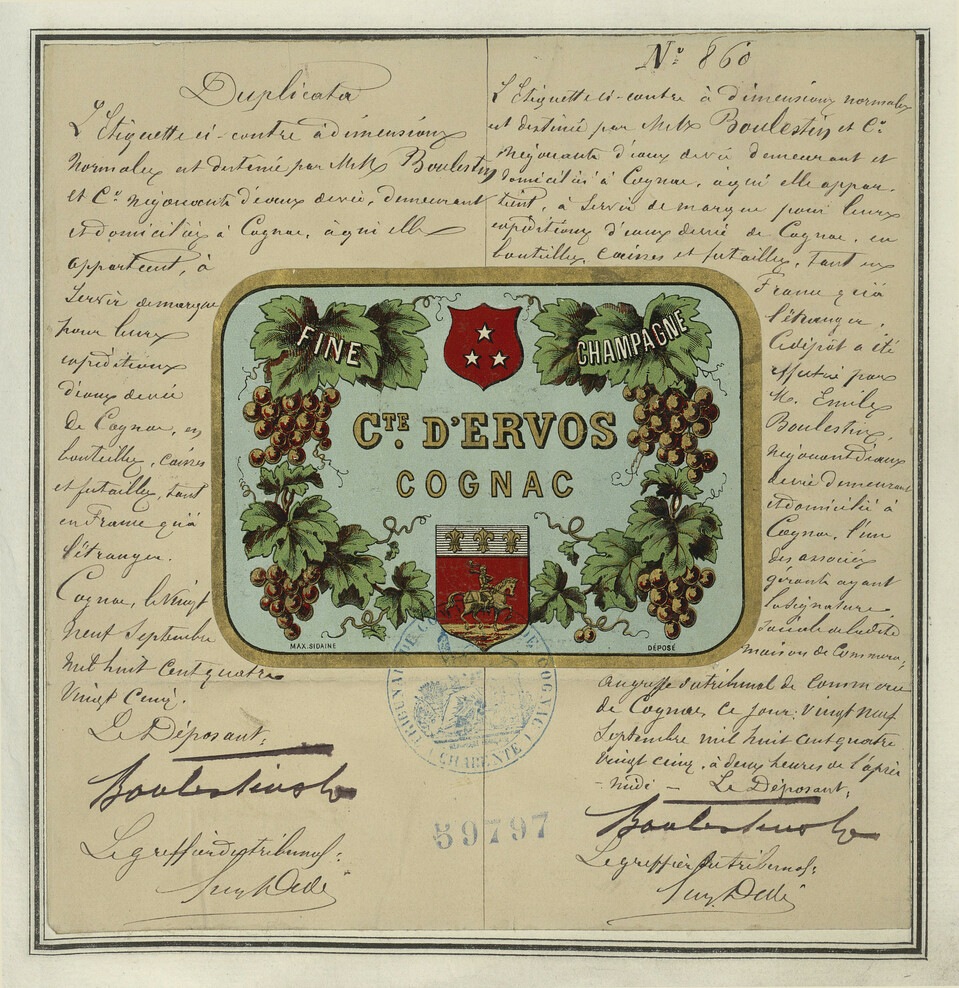 Duplicata
L'Etiquette ci-contre à dimensions
Normales est destinée par MM Boulestin
et Cie négociants d'eaux de vie, demeurant
et domiciliés à Cognac, à qui elle
appartient, à
servir de marque
pour leurs
expéditions
d'eaux de vie
De Cognac, en
bouteilles, caisses
et futailles, tant
en France qu'à
l'étranger.
Cognac, le vingt
neuf Septembre
mil huit cent quatre
vingt cinq.
Le Déposant:
Boulestin & Co
Le greffier du tribunal:
No 860
L'Etiquette ci-contre à dimensions normales
est destinée par MM Boulestin et Cie
négociants d'eaux de vie demeurant et
domiciliés à Cognac, à qui elle appar-
tient, à servir de marque pour leurs
expéditions d'eaux de vie de Cognac, en
bouteilles, caisses et futailles, tant en
France qu'à
l'étranger.
Ce dépôt a été
effectué par
M. Emile
Boulestin,
négociant d'eaux
de vie demeurant
et domicilié à
Cognac, l'un
des associés
gérants ayant
la signature
sociale de la dite
maison de commerce,
au greffe du tribunal de commerce
de Cognac, ce jour: vingt neuf
Septembre mil huit cent quatre
vingt cinq, à deux heures de l'après
-midi - Le Déposant:
Boulestin & Co
Le greffier du tribunal:
FINE
CHAMPAGNE
CTE. D'ERVOS
COGNAC
MAX.SIDAINE
DÉPOSÉ
TRIBUNAL DE COMMERCE DE COGNAC
CHARENTE
59797